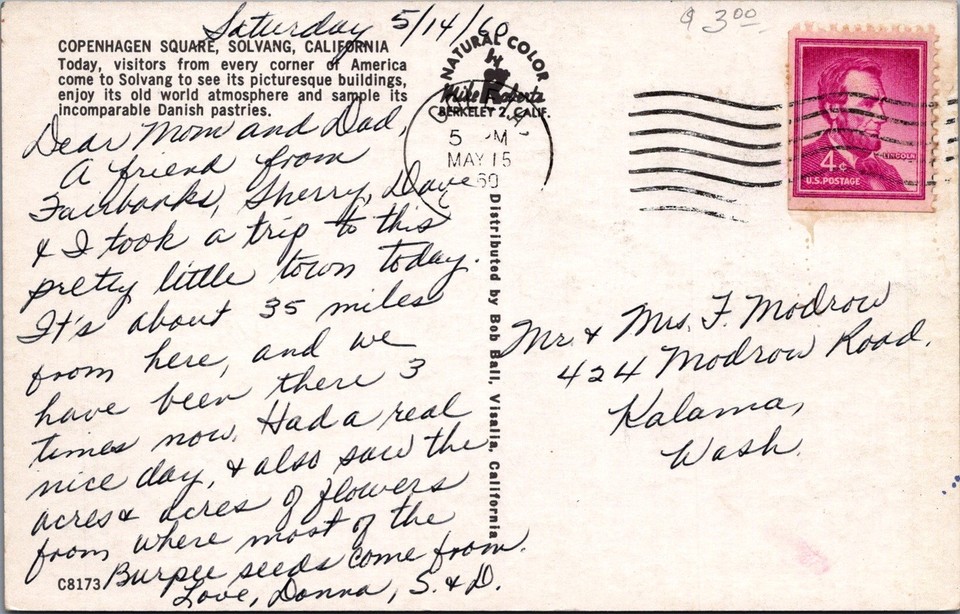 $ 3.00
Saturday 5/14/60
COPENHAGEN SQUARE, SOLVANG, CALIFORNIA
Today, visitors from every corner of America
come to Solvang to see its picturesque buildings,
enjoy its old world atmosphere and sample its
incomparable Danish pastries.
Dear Mom and Dad,
A friend from
Fairbanks, Sherry, Dave
& I took a trip to this
pretty little town today.
It's about 35 miles
from here, and we
have been there 3
times now. Had a real
nice day, & also saw the
acres & acres of flowers
from where most of the
Burpee seeds come from.
Love, Donna, S. & D.
C8173
NATURAL COLOR
by
Mike Roberts
BERKELEY 2, CALIF.
5 PM
MAY 15
60
Distributed by Bob Ball, Visalia, California
LINCOLN
4¢
U.S. POSTAGE
Mr. & Mrs. F. Modrow
424 Modrow Road.
Kalama,
Wash.